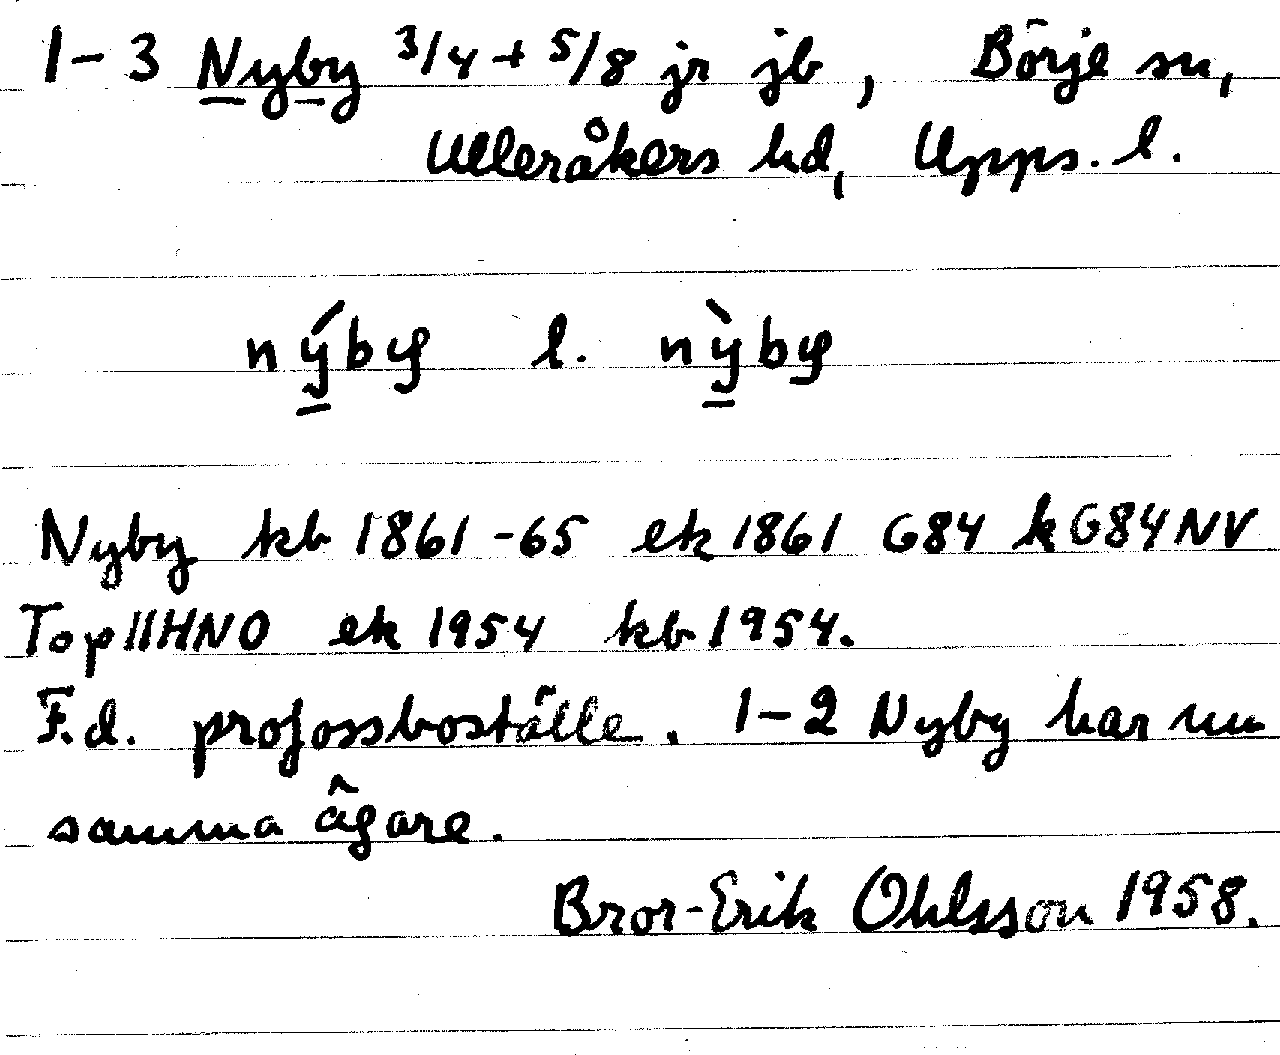 1-3 Nyby 3/4 + 5/8 jr jb, Börje sn,
Ulleråkers hd, Upps. l.
nýby l. nỳby
Nyby kb 1861-65 ek 1861 G84 k G84NV
Top11HNO ek 1954 kb 1954.
F.d. profossboställe. 1-2 Nyby har nu
samma ägare.
Bror-Erik Ohlsson 1958.